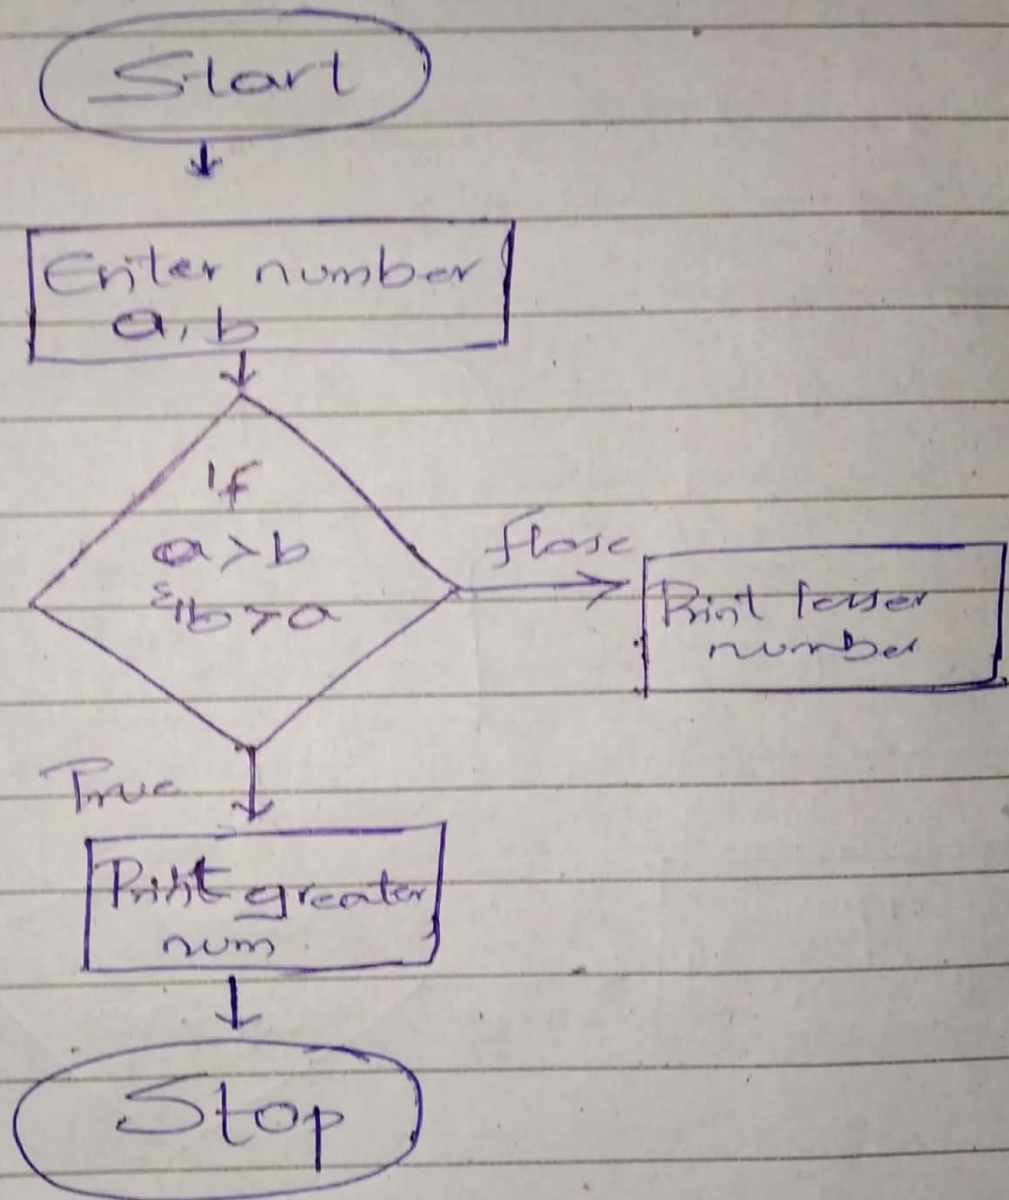 Start
Enter number
a, b
If
a>b
& b>a
flase
Print lesser
number
True
Print greater
num
Stop